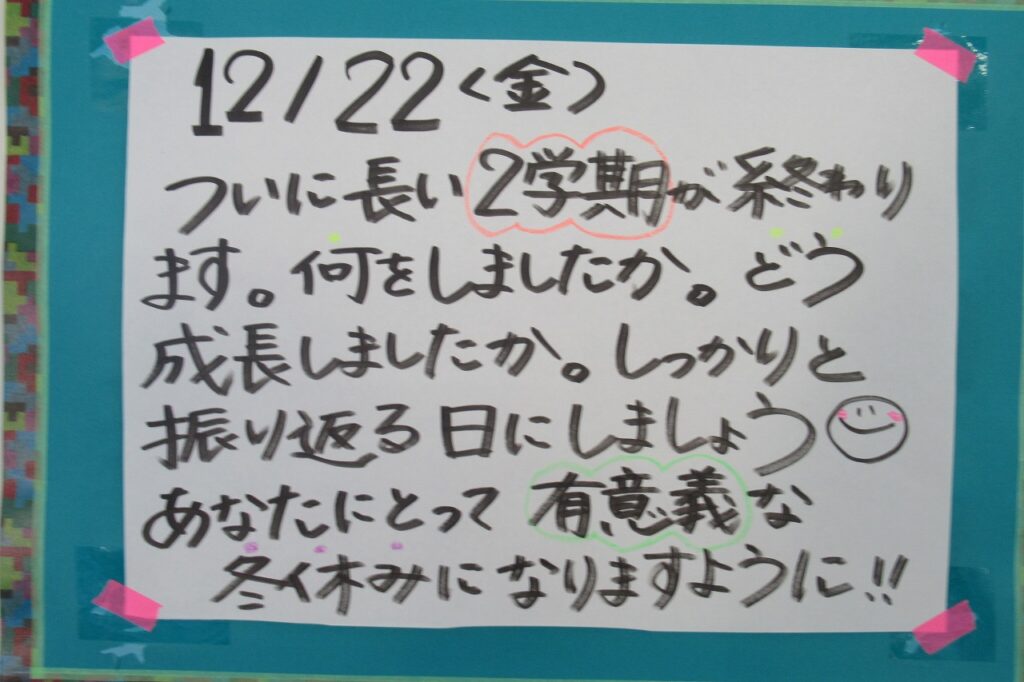 12/22〈金〉
ついに長い2学期が終わり
ます。何をしましたか。どう
成長しましたか。しっかりと
振り返る日にしましょう
あなたにとって有意義な
冬休みになりますように!!